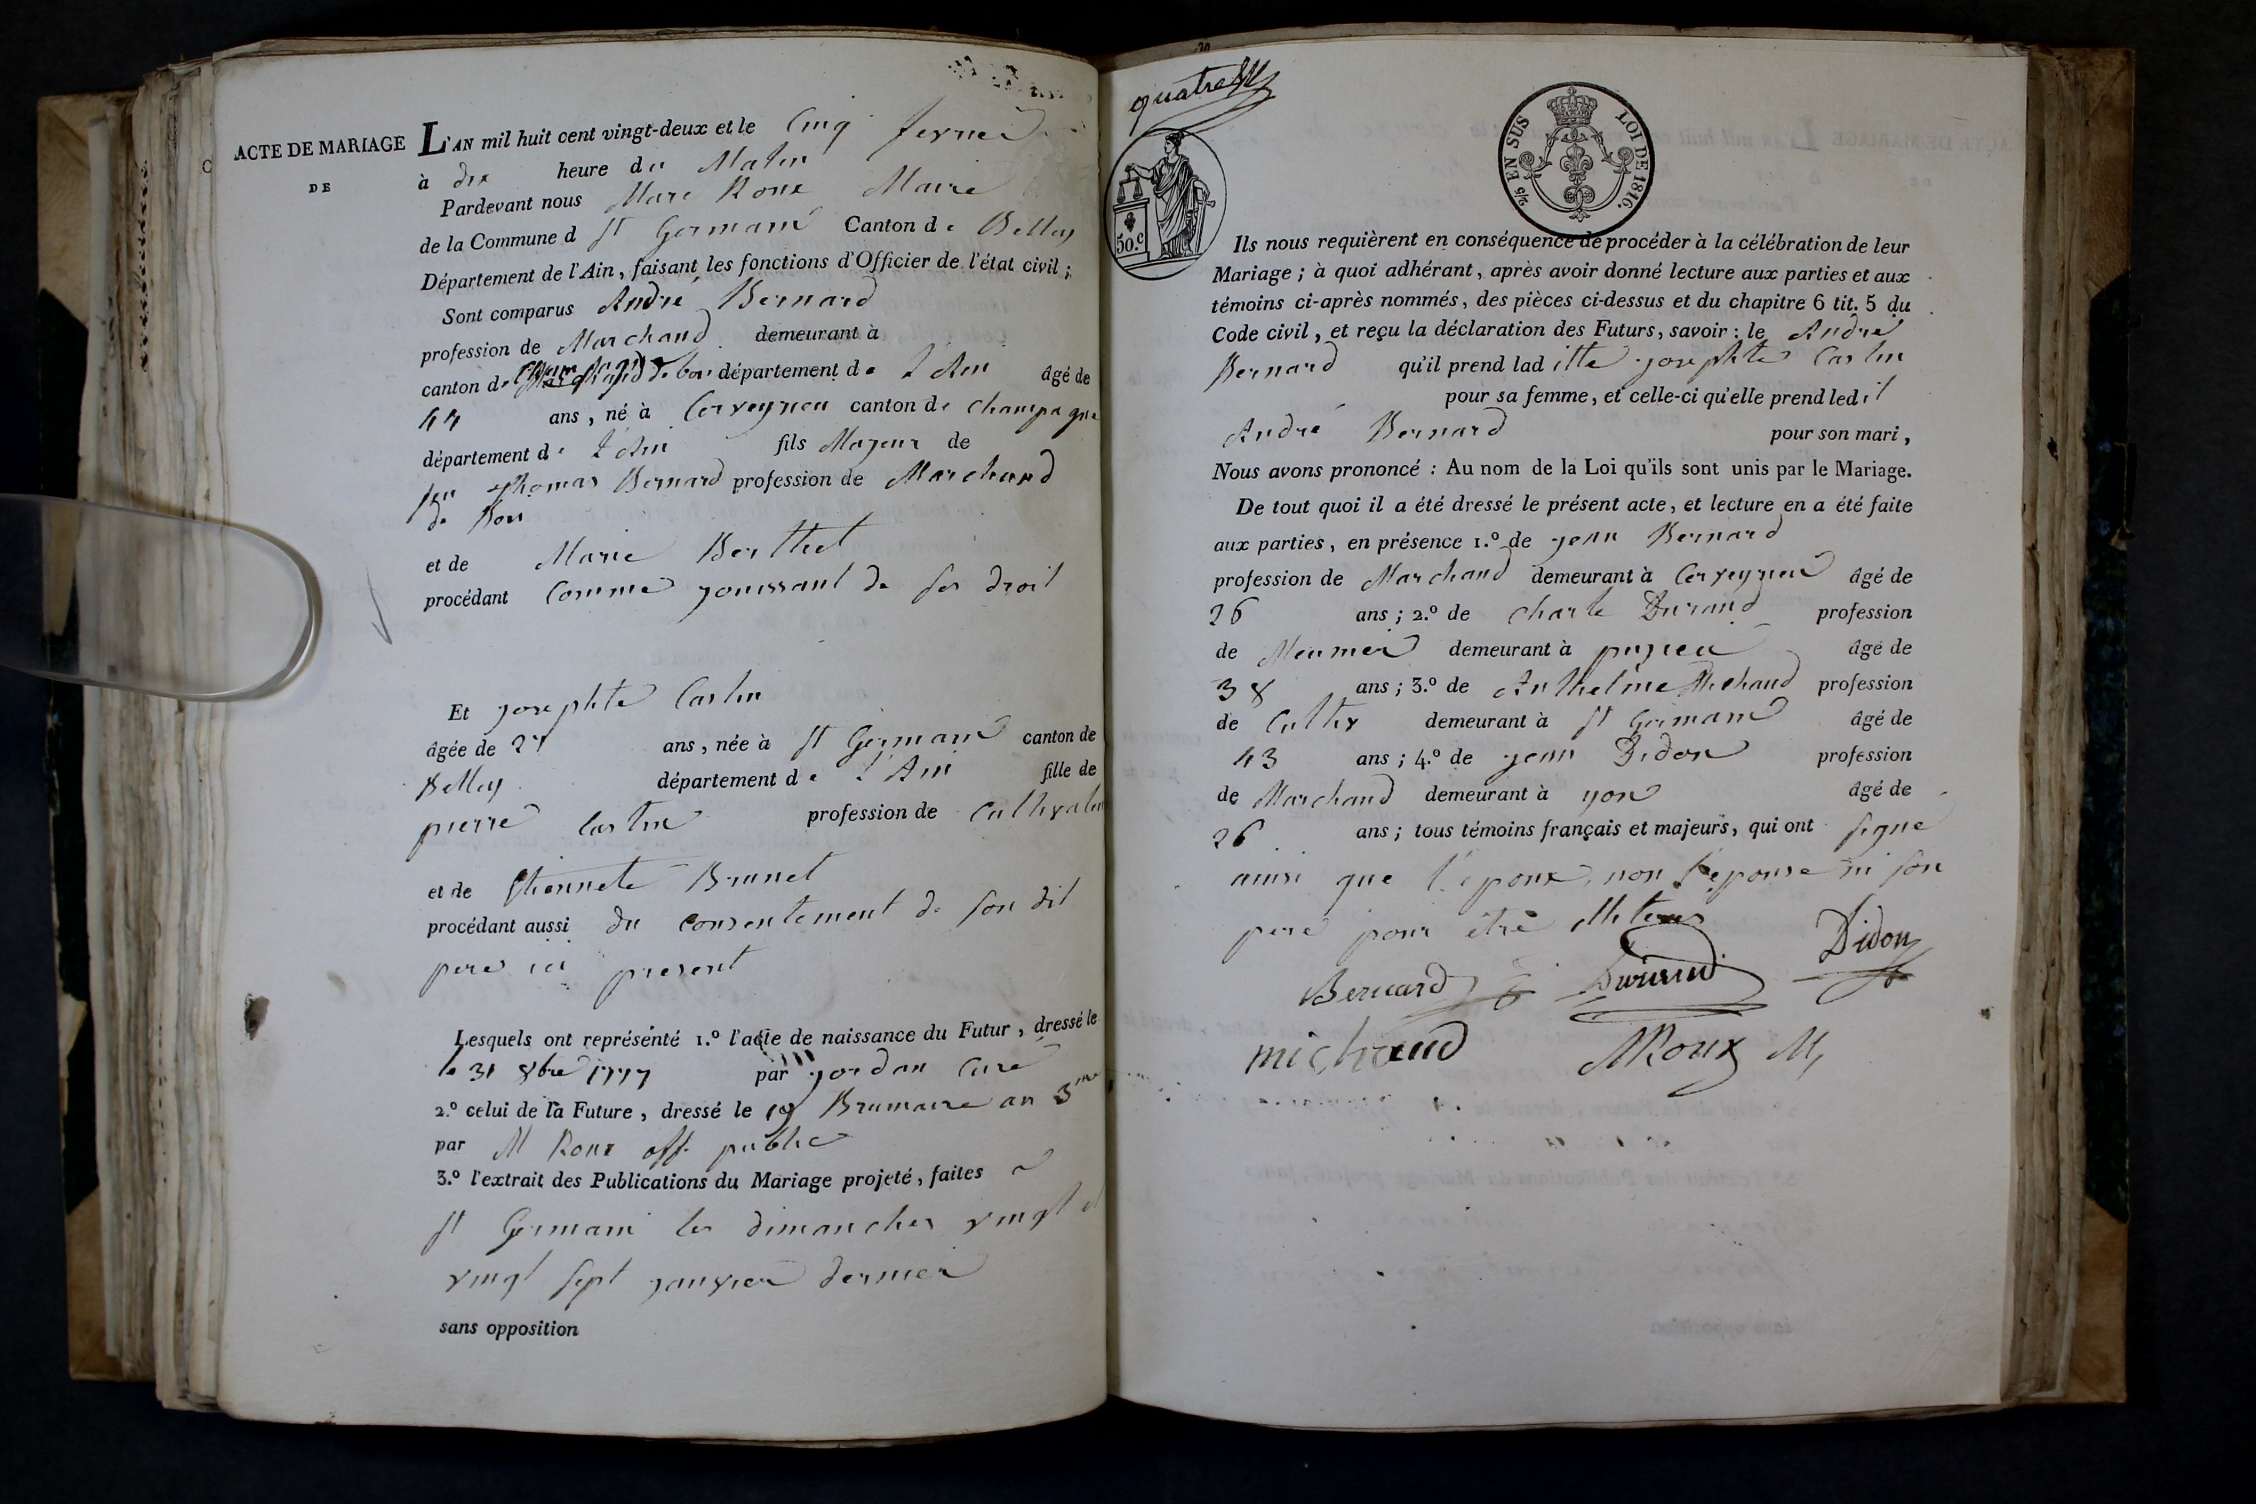 ACTE DE MARIAGE
DE
L'AN mil huit cent vingt-deux et le Cinq fevrier
à dix heure du Matin
Pardevant nous Marc Roux Maire
de la Commune d St Germain Canton de Belley
Département de l'Ain, faisant les fonctions d'Officier de l'état civil;
Sont comparus André Bernard
profession de Marchand demeurant à
canton de département de L'Ain âgé de
44 ans, né à Cerveyrieu canton de champagne
département de L'Ain fils Majeur de
feu thomas Bernard profession de Marchand
de
et de Marie Berthet
procédant Comme jouissant de ses droit
Et josephte Carlin
âgée de 27 ans, née à St Germain canton de
Belley département de l'Ain fille de
pierre Carlin profession de Cultivateur
et de Etiennete Brunet
procédant aussi du consentement de son dit
pere ici present
Lesquels ont représenté 1.º l'acte de naissance du Futur, dressé le
le 31 8bre 1777 par jordan Curé
2.º celui de la Future, dressé le 19 Brumaire an 3me
par M Roux off. public
3.º l'extrait des Publications du Mariage projeté, faites a
St Germain les dimanches vingt et
vingt sept janvier dernier
sans opposition
quatre
50.c
2/5 EN SUS
LOI DE 1816.
Ils nous requièrent en conséquence de procéder à la célébration de leur
Mariage; à quoi adhérant, après avoir donné lecture aux parties et aux
témoins ci-après nommés, des pièces ci-dessus et du chapitre 6 tit. 5 du
Code civil, et reçu la déclaration des Futurs, savoir: le André
Bernard qu'il prend lad itte josephte Carlin
pour sa femme, et celle-ci qu'elle prend led it
André Bernard pour son mari,
Nous avons prononcé: Au nom de la Loi qu'ils sont unis par le Mariage.
De tout quoi il a été dressé le présent acte, et lecture en a été faite
aux parties, en présence 1.º de jean Bernard
profession de Marchand demeurant à Cerveyrieu âgé de
26 ans; 2.º de charle Durand profession
de Meunier demeurant à pugieu âgé de
38 ans; 3.º de Anthelme Michaud profession
de Cultiv demeurant à St Germain âgé de
43 ans; 4.º de jean Didon profession
de Marchand demeurant à yon âgé de
26 ans; tous témoins français et majeurs, qui ont signé
ainsi que l'epoux, non l'epouse ni son
pere pour être illiteres
Bernard Durand Didon
michaud MRoux M,